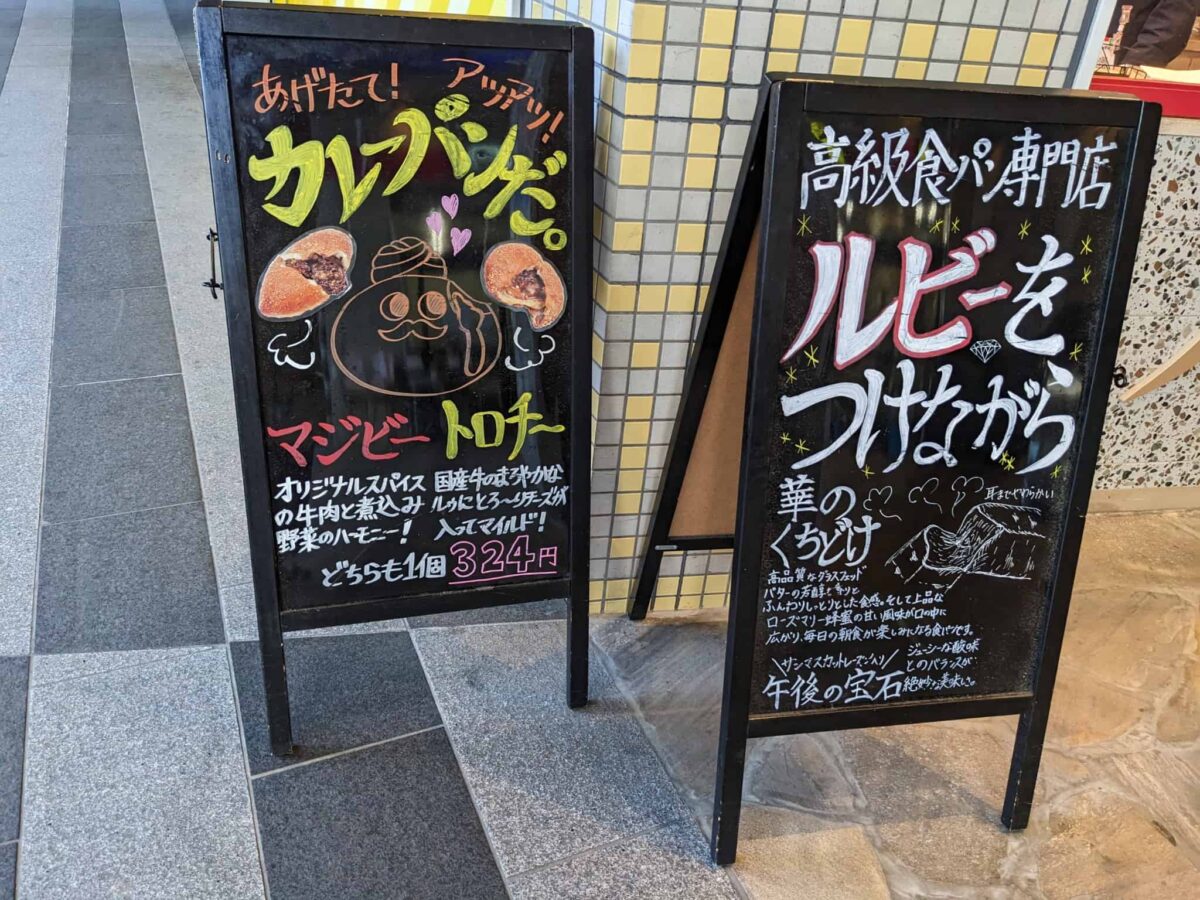 あげたて！ アツアツ！
カレーパンだ。
マジビー トロチー
オリジナルスパイス
の牛肉と煮込み
野菜のハーモニー！
国産牛のまろやかな
ルゥにとろ〜りチーズが
入ってマイルド！
どちらも1個 324円
高級食パン専門店
ルビーを、
つけながら
華の
くちどけ
耳までやわらかい
高品質なグラスフェッド
バターの芳醇な香りと
ふんわりしっとりとした食感。そして上品な
ローズマリー蜂蜜の甘い風味が口の中に
広がり、毎日の朝食が楽しみになる食パンです。
\サンマスカットレーズン入り/
午後の宝石
ジューシーな酸味
とのバランスが
絶妙な美味しさ。